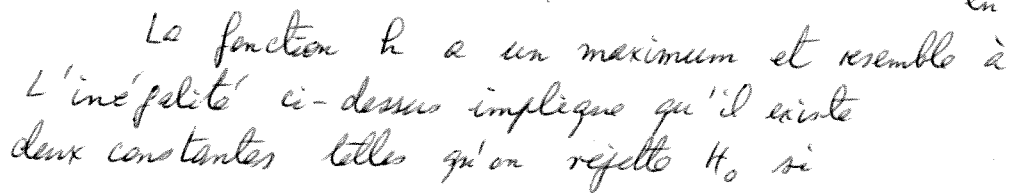 La fonction h a un maximum et resemble à
L'inégalité ci-dessus implique qu'il existe
deux constantes telles qu'on rejette H₀ si